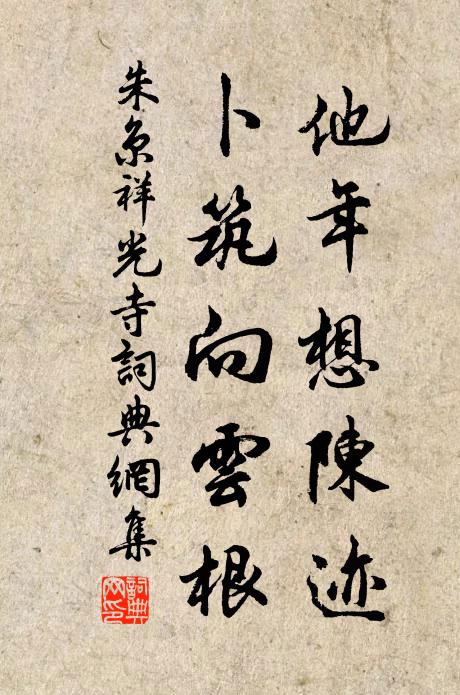 他年想陳迹
卜筑向雲根
朱京祥光寺詞典網集
詞典网印